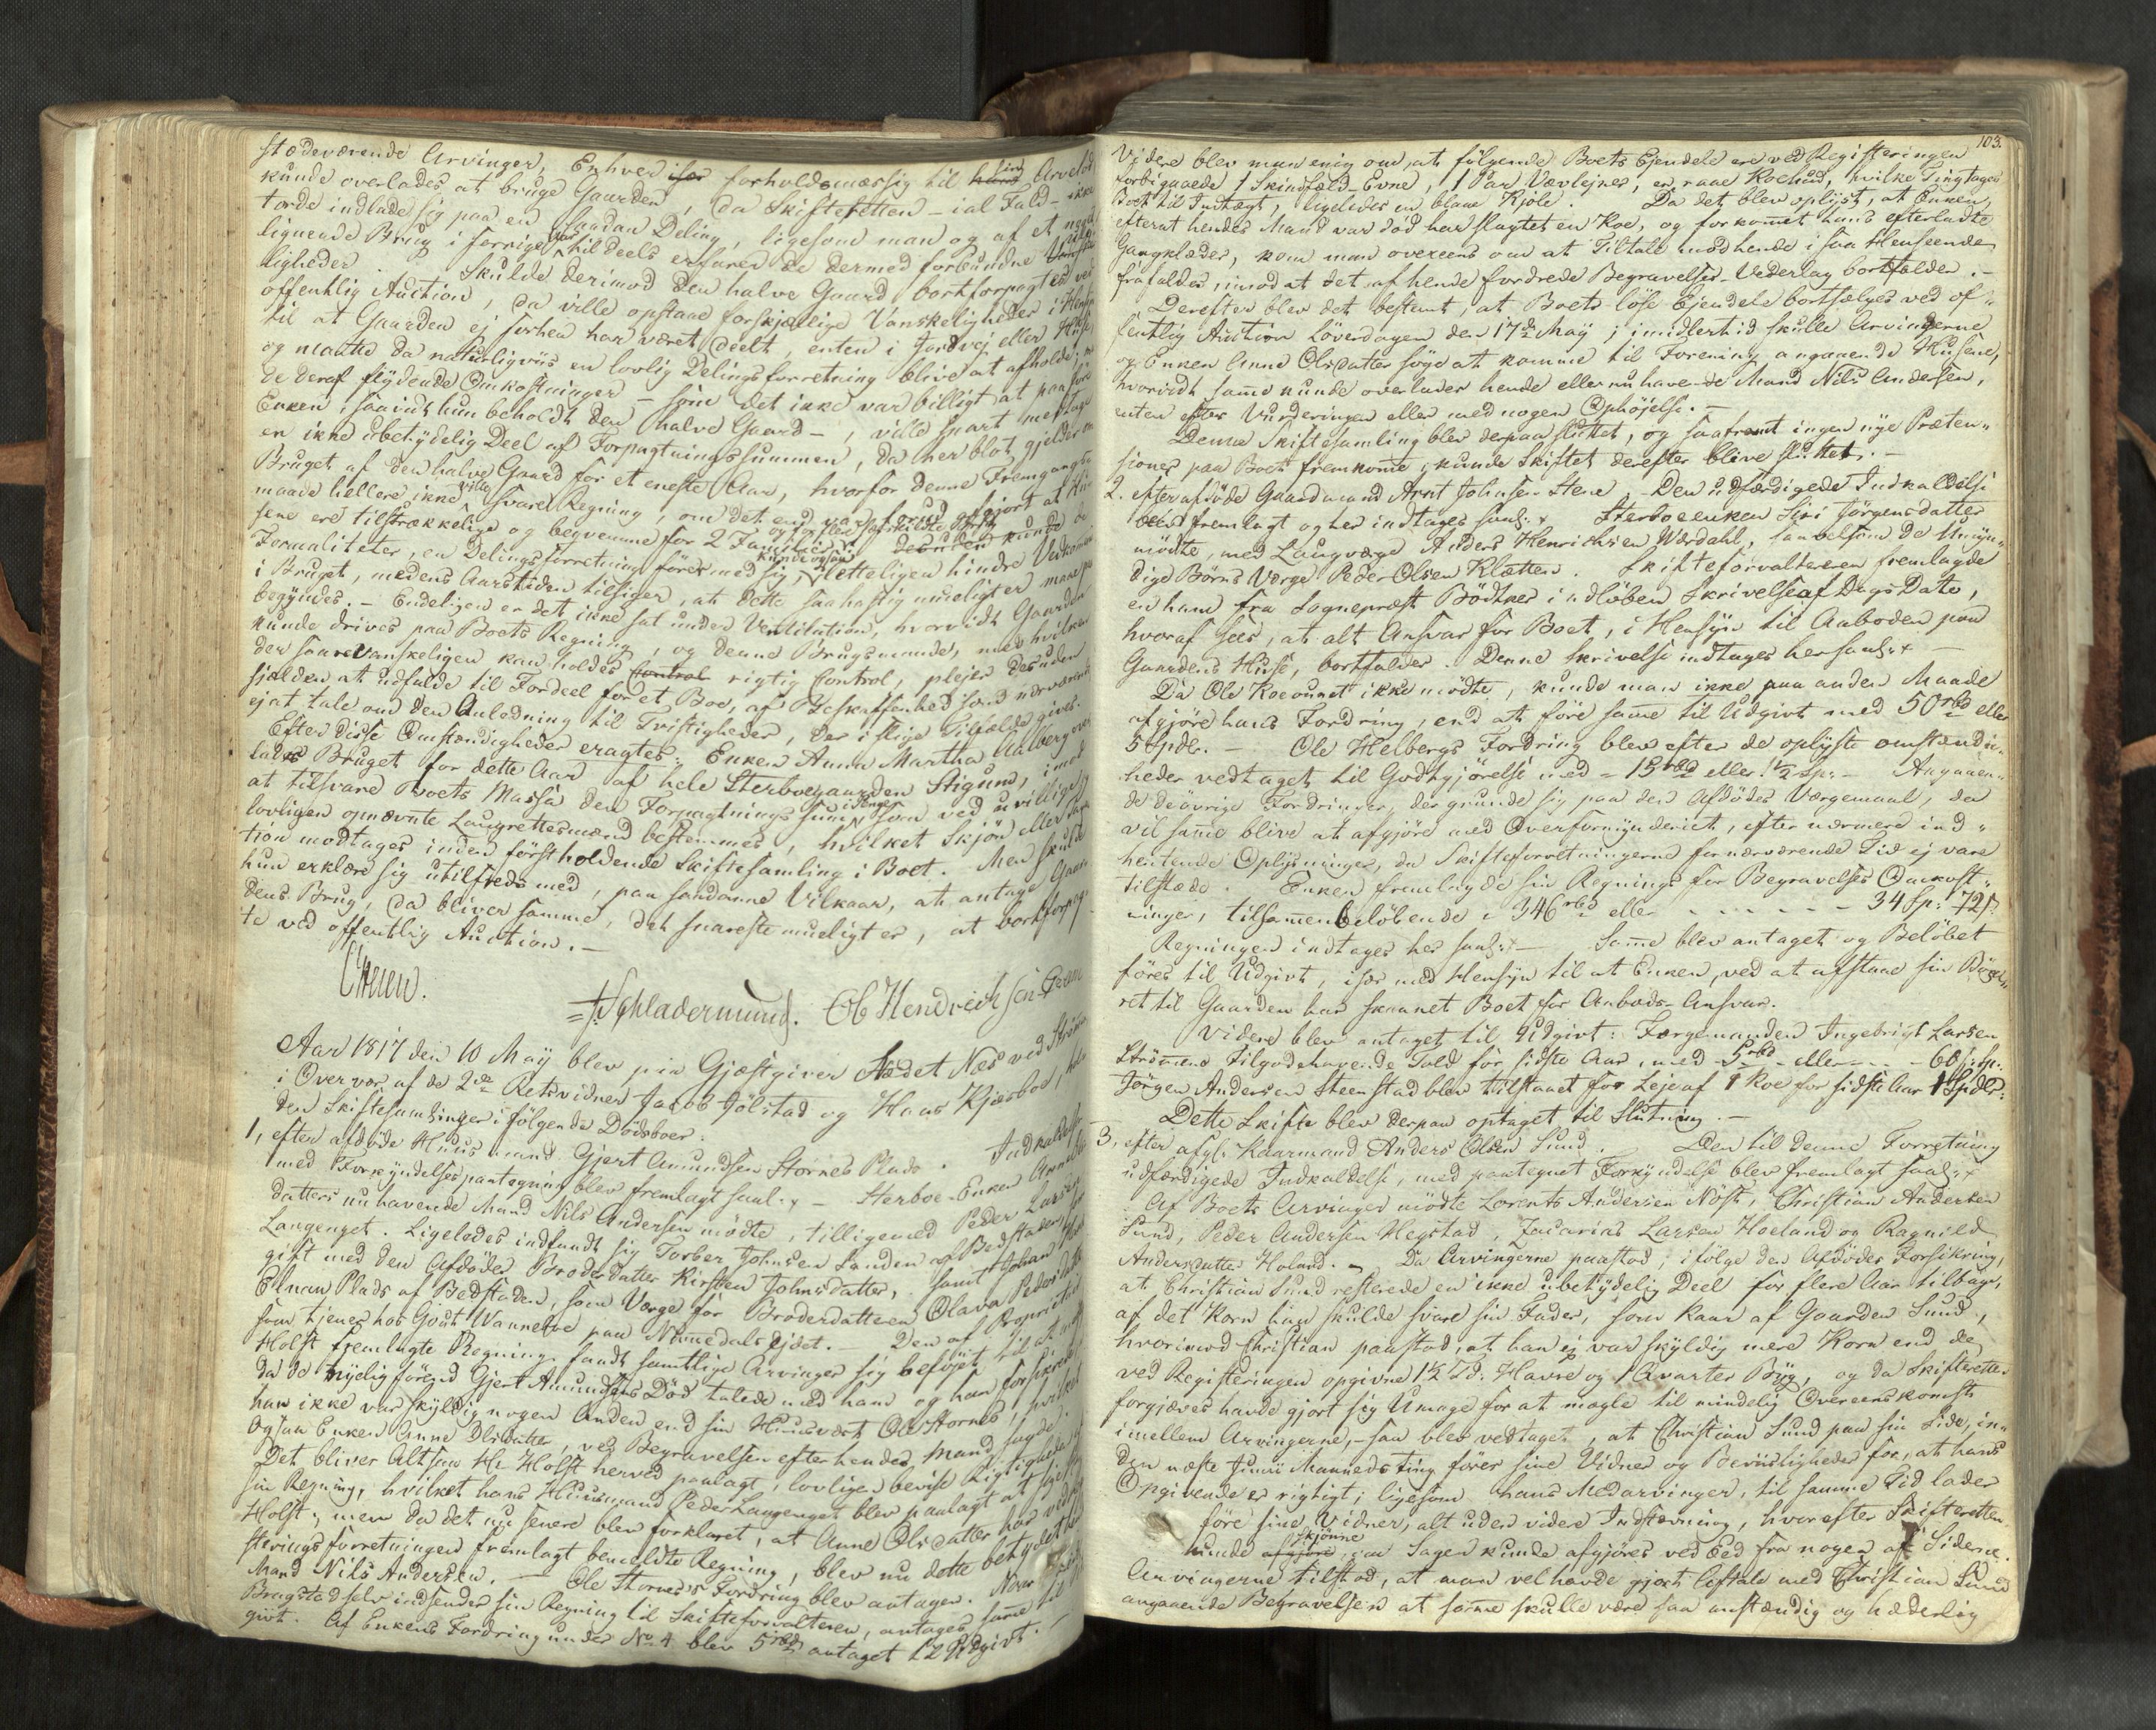 stædeværende Arvinger, Enhver især forholdsmæssig til hans sin Arvelod
kunde overlades at bruge Gaarden, da Skifteretten - ial Fald - ikke
torde indlade sig paa en saadan Deling, ligesom man og af et
lignende Brug i forrige Aar tildeels erfarer de dermed forbundne
ligheder. Skulde derimod den halve Gaard bortforpagtes ved
offentlig Auction, da ville opstaae forskjællige Vanskeligheder i
til at Gaarden ej forhen har været deelt, enten i Jordvej eller Huse,
og maatte da naturligviis en lovlig Delingsforretning blive at afholde;
de deraf flydende Omkostninger - som det ikke var billigt at paaføre
Enken, saavidt hun beholdt den halve Gaard -, ville snart medtage
en ikke ubetydelig Deel af Forpagtningssummen, da her blot gjelder om
Bruget af den halve Gaard for et eneste Aar, hvorfor denne Fremgangs
maade hellere ikke ville svare Regning, om det end var forud afgjort at
sene ere tilstrækkelige og beqvemme for 2 Familier desuden kunde de
Formaliteter, en Delingsforretning fører med sig, kunde ogsaa letteligen hindre
i Bruget, medens Aarstiden tilsiger, at dette saa hastig mueligt er maae paa
begyndes. - Endeligen er det ikke sat under Ventilation, hvorvidt Gaarden
kunde drives paa Boets Regning, og denne Brugsmaade, med hvilken
der saare vanskeligen kan holdes Control rigtig Control, plejer desuden
sjælden at udfalde til Fordeel for et Boe, af Beskaffenhed som nærværende
ej at tale om den Anledning til Tvistigheder, der i slige Tilfælde gives.
Efter disse Omstændigheder eragtes: Enken Anna Martha Aalberg over
lades Bruget for dette Aar af hele Sterboegaarden Stigund, imod
at tilsvare Boets Massa den Forpagtnings sum i Penge som ved uvillige
lovligen opnævnte Laugrettesmænd bestemmes, hvilket Skjøn eller
tion modtages inden først holdende Skiftesamling i Boet. Men skulde
hun erklære sig utilfreds med, paa saadanne Vilkaar, at antage Gaar
dens Brug, da bliver samme, det snareste mueligt er, at bortforpag-
te ved offentlig Auction. -
Schladermund. Ole Hendrichsen
Aar 1817 den 10 Maÿ blev paa Gjæstgiver Stædet Næs ved Strømmen
i Overvær af de 2de Retsvidner Jacob Jølstad og Hans Kjesboe,
den Skiftesamlinger i følgende Dødsboer:
1, efter afdøde Huusmand Gjert Amundsen Størnes Plads. Indkaldelse
med Forkyndelsespaategning blev fremlagt saal: - Sterboe-Enken Anne Ols
datters nuhavende Mand Nils Andersen mødte, tilligemed Peder Larsen
Langenget. Ligeledes indfandt sig Torber Johnsen Sanden af Bedstaden,
gift med den Afdødes Broderdatter Kirsten Johnsdatter, samt Johan
Elnan Plads af Bedstaden, som Værge for Broderdatteren Olava Pedersdatter
som tjener hos Gjært Wannebo paa Nummedals Ejdet. - Den af Proprietair
Holst fremlagte Regning fandt samtlige Arvinger sig beføjet til at
da de nyelig førend Gjert Amundsens Død talede med ham og han forsikrede
han ikke var skyldig nogen Anden end sin Huusvert Ole Stornes, hvilket
ogsaa Enken Anne Olsdatter, ved Begravelsen efter hendes Mand sagde.
Det bliver Altsaa Hr Holst herved paalagt, lovligen bevise Rigtigheden af
sin Regning, hvilket hans Huusmand Peder Langenget blev paalagt at sige
Holst; men da det nu senere blev forklaret, at Anne Olsdatter har ved
steringsforretningen fremlagt bemeldte Regning, blev nu dette betydet
Mand Nils Andersen. - Ole Stornes's Fordring blev antagen. Naar
Bragstad selv indsender sin Regning til Skifteforvalteren, antages samme til
givt. Af Enkens Fordring under No 4 blev 5 rbd antaget til Udgivt. -
103.
Videre blev man enig om, at følgende Boets Ejendele ere ved Registeringen
forbigaaede 1 Skindfæld-Evne, 1 Par Vævlejner, en raae Koehud, hvilke Ting tages
Boet til Indtægt, ligeledes en blaae Kjole. Da det blev oplyst, at Enken,
efterat hendes Mand var død har slagtet en Koe, og forkommet hans efterladte
Gangklæder, kom man overeens om at Tiltale mod hende i saa Henseende
frafalder, imod at det af hende fordrede Begravelses-Vederlag bortfalder. -
Derefter blev det bestemt, at Boets løse Ejendele bortsælges ved of-
fentlig Auction Løverdagen den 17de Maÿ; imidlertid skulle Arvingerne
og Enken Anne Olsdatter søge at komme til Forening angaaende Husene,
hvorvidt samme kunde overlades hende eller nuhavende Mand Nils Andersen,
enten efter Vurderingen eller med nogen Ophøjelse. -
Denne Skiftesamling blev derpaa sluttet, og saafremt ingen nye Præten-
sioner paa Boet fremkomme, kunde Skiftet derefter blive sluttet. -
2. efter afdøde Gaardmand Arnt Johnsen Stene. Den udfærdigede Indkaldelse
blev fremlagt og her indtages saal: Sterboeenken Siri Jørgensdatter
mødte, med Laugværge Anders Henrichsen Værdahl, saavelsom de Umyn-
dige Børns Værge Peder Olsen Klætten. Skifteforvalteren fremlagde
en ham fra Sognepræst Bødtker indløben Skrivelse af Dags Dato,
hvoraf sees, at alt Ansvar for Boet, i Hensyn til Aaboden paa
Gaardens Huse, bortfalder. Denne Skrivelse indtages her saal: -
Da Ole Roeounet ikke mødte, kunde man ikke paa anden Maade
afgjøre hans Fordring, end at føre samme til Udgivt med 50 rbd eller
5 Spdlr. - Ole Helbergs Fordring blev efter de oplyste omstændig-
heder vedtaget til Godtgjørelse med - 15 rbd eller 1½ Sp: - Angaaen-
de de øvrige Fordringer, der grunde sig paa den Afdødes Værgemaal, da
vil samme blive at afgjøre med Overformynderiet, efter nærmere ind-
hentende Oplysninger, da Skifteforretningerne for nærværende Tid ej vare
tilstæde. Enken fremlagde sin Regning for Begravelses Omkost-
ninger, tilsammen beløbende - 346 rbd eller - - - - - - 34 Sp: 72 s.
Regningen indtages her saal: - Samme blev antaget og Beløbet
føres til Udgivt, især med Hensyn til at Enken, ved at afstaae sin Bøxel-
ret til Gaarden har skaanet Boet for Aabods-Ansvar.
Videre blev antaget til Udgivt: Færgemanden Ingebrigt Larsen
Strømmens tilgodehavende Told for sidste Aar, med - 5 rbd - eller - - 60 s: Sp:
Jørgen Andersen Steenstad blev tilstaaet for Leje af 1 Koe for sidste Aar 1 Spdlr:
Dette Skifte blev derpaa optaget til Slutning. -
3, efter afg: Kaarmand Anders Olsen Sund. Den til denne Forretning
udfærdigede Indkaldelse, med paategnet Forkyndelse blev fremlagt saal:
Af Boets Arvinger mødte Lorents Andersen Nøst, Christian Andersen
Sund, Peder Andersen Hegstad, Zacarias Larsen Hoeland og Ragnild
Andersdatter Holand. - Da Arvingerne paastod, ifølge den Afdødes Forsikring,
at Christian Sund resterede en ikke ubetydelig Deel for flere Aar tilbage,
af det Korn han skulde svare sin Fader, som Kaar af Gaarden Sund,
hvorimod Christian paastod, at han ej var skyldig mere Korn end de
ved Registeringen opgivne 1½ Td: Havre og 1 Qvarter Byg, og da Skifteretten
forgjæves havde gjort sig Umage for at mægle til mindelig Overeenskomst
imellem Arvingerne, - saa blev vedtaget, at Christian Sund paa sin Side, in-
den næste Junii Maaneds Ting fører sine Vidner og Beviisligheder for, at hans
Opgivende er rigtigt; ligesom hans Medarvinger, til samme Tid lader
føre sine Vidner, alt uden videre Indstævning, hvorefter Skifteretten
kunde afgjøre skjønne, om Sagen kunde afgjøres ved Eed fra nogen af Siderne.
Arvingerne tilstod, at man vel havde gjort Aftale med Christian Sund
angaaende Begravelsen at samme skulle være saa anstændig og hæderlig